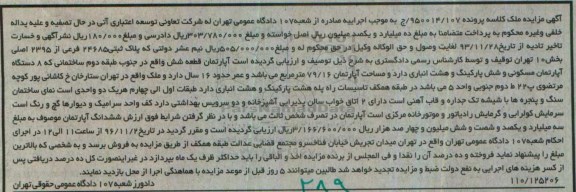 آگهی مزایده ملک کلاسه پرونده ۹۵۰۰۱۴/۱۰۷/ج به موجب اجراییه صادره از شعبه۱۰۷ دادگاه عمومی تهران له شرکت تعاونی توسعه اعتباری آتی در حال تصفیه و علیه یداله
خلفی وغیره محکوم به پرداخت متضامنا به مبلغ ده میلیارد و یکصد میلیون ریال اصل خواسته و مبلغ ۳۰۳/۷۸۰/۰۰۰ریال دادرسی و مبلغ۱۸۰/۰۰۰ریال نشرآگهی و خسارت
تاخیر تادیه از تاریخ۹۳/۱۱/۲۸ لغایت وصول و حق الوکاله وکیل در حق محکوم له و مبلغ۵۰۵/۰۰۰/۰۰۰ریال نیم عشر دولتی که پلاک ثبتی۲۲۶۸۵ فرعی از ۲۳۹۵ اصلی
بخش۱۰ تهران توقیف و توسط کارشناس رسمی دادگستری به شرح ذیل توصیف و ارزیابی گردیده است آپارتمان قطعه شش واقع در جنوب طبقه دوم ساختمانی که ۸ دستگاه
آپارتمان مسکونی و شش پارکینگ و هشت انباری دارد و مساحت آپارتمان ۷۹/۱۶ مترمربع می باشد و عمر حدود ۱۶ سال دارد و ملک واقع در تهران ستارخان خ کاشانی پور کوچه
مرتضوی پ۲۲ ط دوم جنوبی واحد ۵ می باشد در طبقه همکف تاسیسات راه پله هشت پارکینگ و هشت انباری دارد طبقات اول الی چهارم هریک دو واحدی است نمای ساختمان
سنگ و پنجره ها با شیشه تک جداره و قاب آهنی است دارای ۲ اتاق خواب سالن پذیرایی آشپزخانه و دو سرویس بهداشتی دارد کف واحد سرامیک و دیوارها گچ و رنگ است
سرمایش کولرآبی و گرمایش رادیاتور و موتورخانه مرکزی است آپارتمان در تصرف شخص ثالث می باشد و با در نظر گرفتن شرایط فوق ارزش ششدانگ آپارتمان موصوف به مبلغ
سه میلیارد و یکصد و شصت و شش میلیون و چهار صد هزار ریال ۳/۱۶۶/۴۰۰/۰۰۰ریال ارزیابی گردیده است و مقرر گردید در تاریخ۹۶/۱۱/۲ از ساعت۱۱ الی۱۲ در اجرای
احکام شعبه۱۰۷ دادگاه عمومی تهران واقع در تهران میدان تجریش خیابان فناخسرو مجتمع قضایی عدالت طبقه همکف از طریق مزایده به فروش برسد و به شخصی که بالاترین
مبلغ را پیشنهاد نماید فروخته و ده درصد آن را نقدا و فی المجلس از برنده مزایده اخذ و الباقی را باید حداکثر ظرف یک ماه بپردازد در غیراینصورت کل ده درصد دریافتی پس
از کسر هزینه های اجرایی به نفع دولت ضبط و مزایده تجدید خواهد شد طالبین میتوانند ۵ روز قبل از موعد مزایده با هماهنگی اجرا از محل بازدید نمایند.
۱۱۰/۱۲۵۲۰۶ دادورز شعبه۱۰۷ دادگاه عمومی حقوقی تهران
۲۸۹